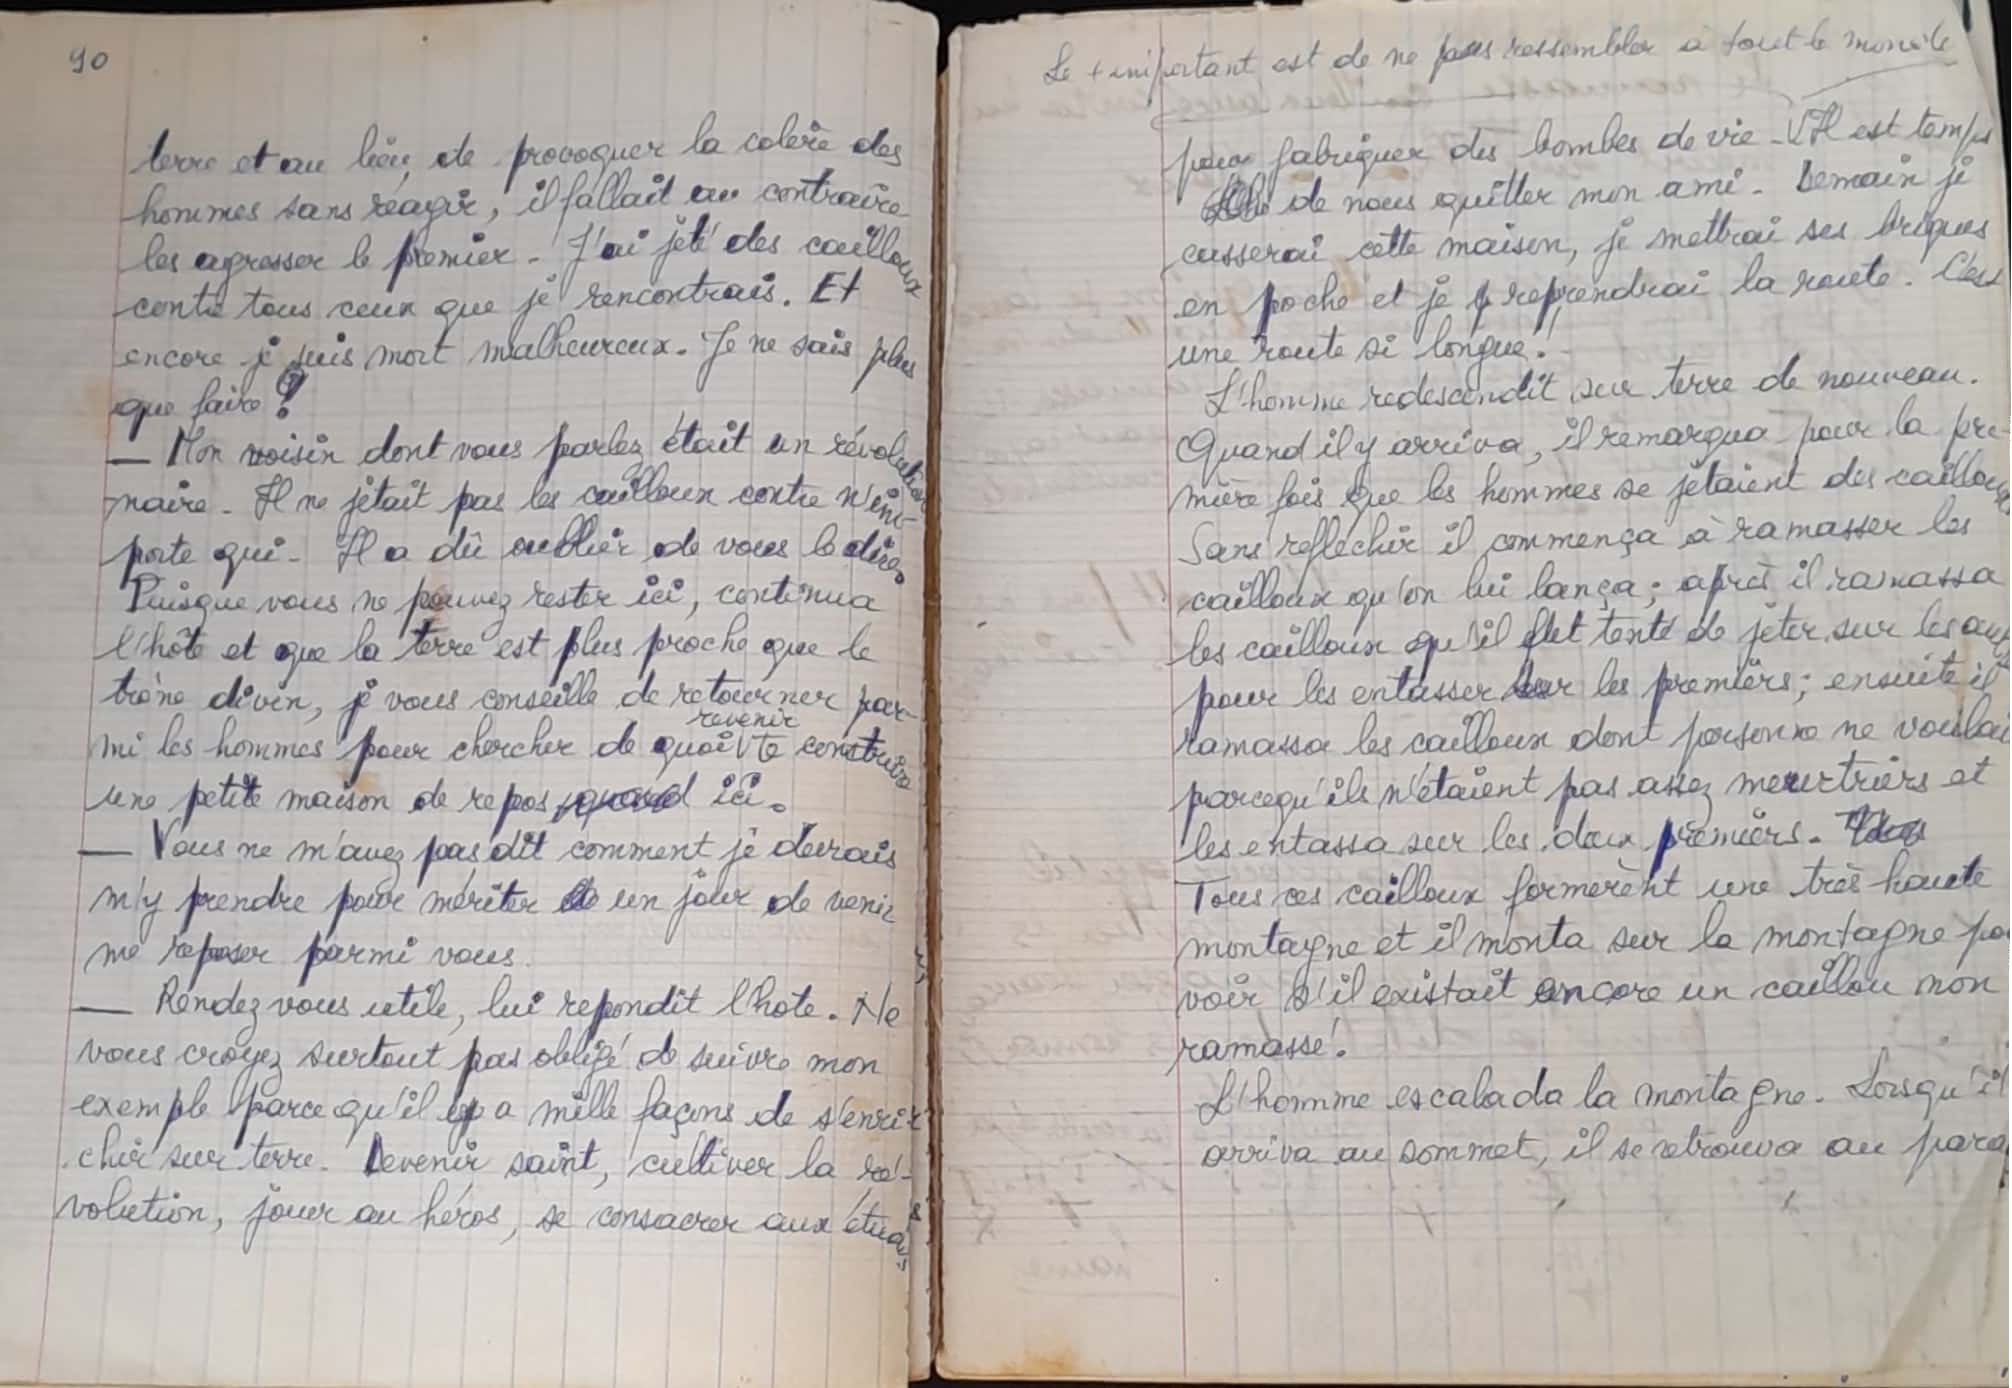 90
terre et au lieu, de provoquer la colère des
hommes sans réagir, il fallait au contraire
les agresser le premier - J'ai jeté des cailloux
contre tous ceux que je rencontrais. Et
encore je suis mort malheureux. Je ne sais plus
que faire ?
— Mon voisin dont vous parlez était un révolution
naire - Il ne jetait pas les cailloux contre n'im-
porte qui - Il a dû oublier de vous le dire.
Puisque vous ne pouvez rester ici, continua
l'hôte et que la terre est plus proche que le
trône divin, je vous conseille de retourner par-
mi les hommes pour chercher de quoi revenir te construire
une petite maison de repos ici.
— Vous ne m'avez pas dit comment je devrais
m'y prendre pour mériter un jour de venir
me reposer parmi vous.
— Rendez vous utile, lui repondit l'hote. Ne
vous croyez surtout pas obligé de suivre mon
exemple parce qu'il y a mille façons de s'enri-
chir sur terre. Devenir saint, cultiver la ré-
volution, jouer au héros, se consacrer aux études
Le + important est de ne pas ressembler à tout le monde
pour fabriquer des bombes de vie - Il est temps
de nous quitter mon ami - Demain je
casserai cette maison, je mettrai ses briques
en poche et je reprendrai la route. C'est
une route si longue !
L'homme redescendit sur terre de nouveau.
Quand il y arriva, il remarqua pour la pre-
mière fois que les hommes se jetaient des cailloux
Sans reflechir il commença à ramasser les
cailloux qu'on lui lança ; après il ramassa
les cailloux qu'il fut tenté de jeter sur les
pour les entasser sur les premiers ; ensuite il
ramassa les cailloux dont personne ne voulai
parcequ'ils n'étaient pas assez meurtriers et
les entassa sur les deux premiers.
Tous ces cailloux formerènt une très haute
montagne et il monta sur la montagne po
voir s'il existait encore un caillou non
ramassé.
L'homme escalada la montagne. Lorsqu'il
arriva au sommet, il se retrouva au para